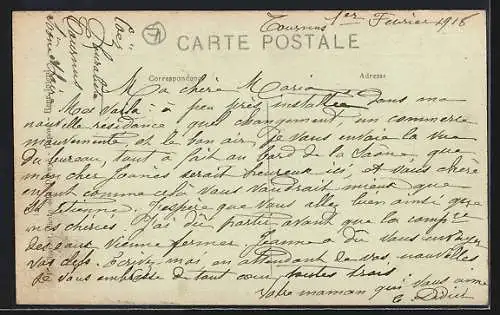 Tournus 1er Février 1918
CARTE POSTALE
Correspondance
Adresse
Ma chère Maria
Me voilà à peu près installée dans ma
nouvelle résidence quel changement, un commerce
mouvementé, et le bon air, je vous envoie la vue
du bureau, tout à fait au bord de la Saône, que
mon cher serait heureux ici, et vous chère
enfant comme cela vous vaudrait mieux que
St Etienne. J'espère que vous allez bien ainsi que
mes chéries. J'ai dû partir avant que la
des eaux vienne fermer, Jeanne a dû vous envoyer
vos clefs. Ecrivez moi en attendant de vos nouvelles
Je vous embrasse de tout cœur toutes trois
Votre maman qui vous aime
C. Didier
Buraliste
Tournus
Saône et